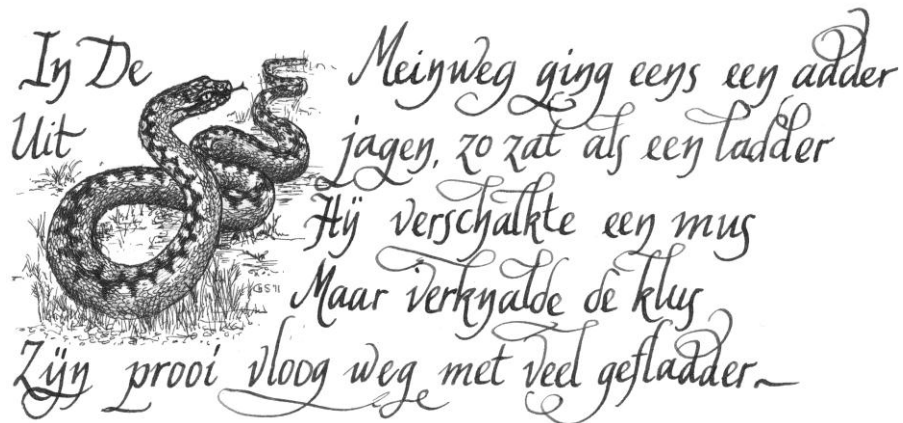 In De Meinweg ging eens een adder
Uit jagen, zo zat als een ladder
Hij verschalkte een mus
Maar verknalde de klus
GS'11
Zijn prooi vloog weg met veel gefladder~